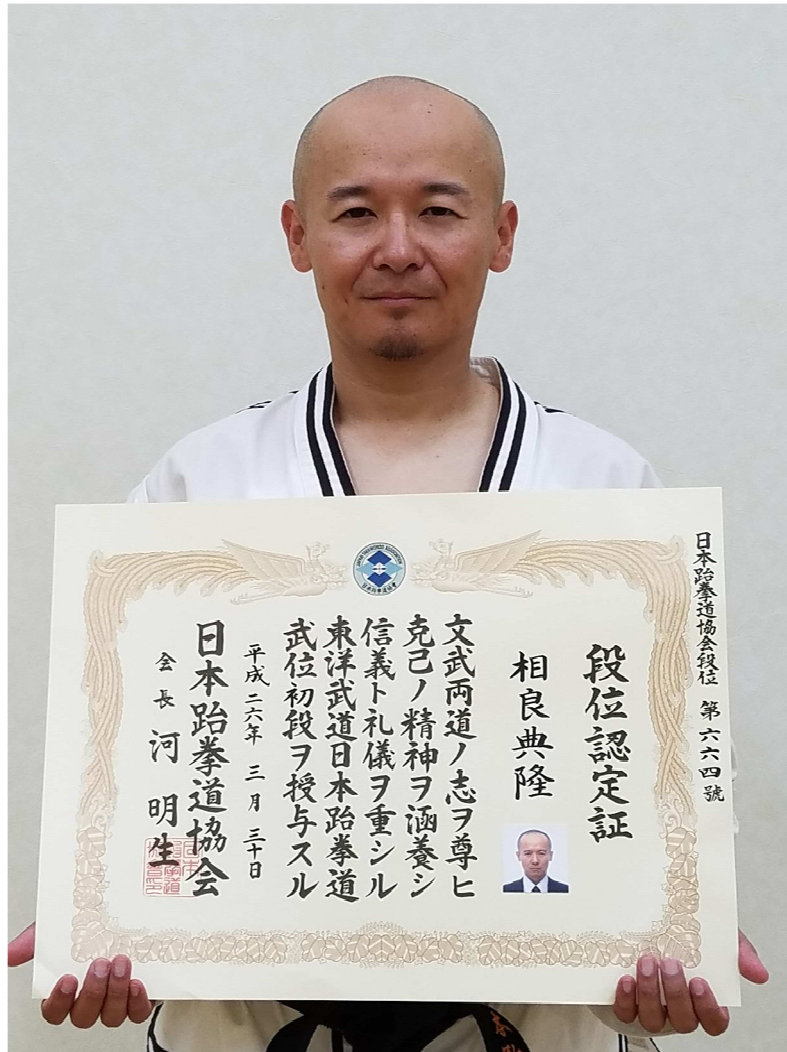 日本跆拳道協会段位 第六六四號
段位認定証
相良典隆
文武両道ノ志ヲ尊ヒ
克己ノ精神ヲ涵養シ
信義ト礼儀ヲ重シル
東洋武道日本跆拳道
武位初段ヲ授与スル
平成二六年 三月 三十日
日本跆拳道協会
会長 河 明生